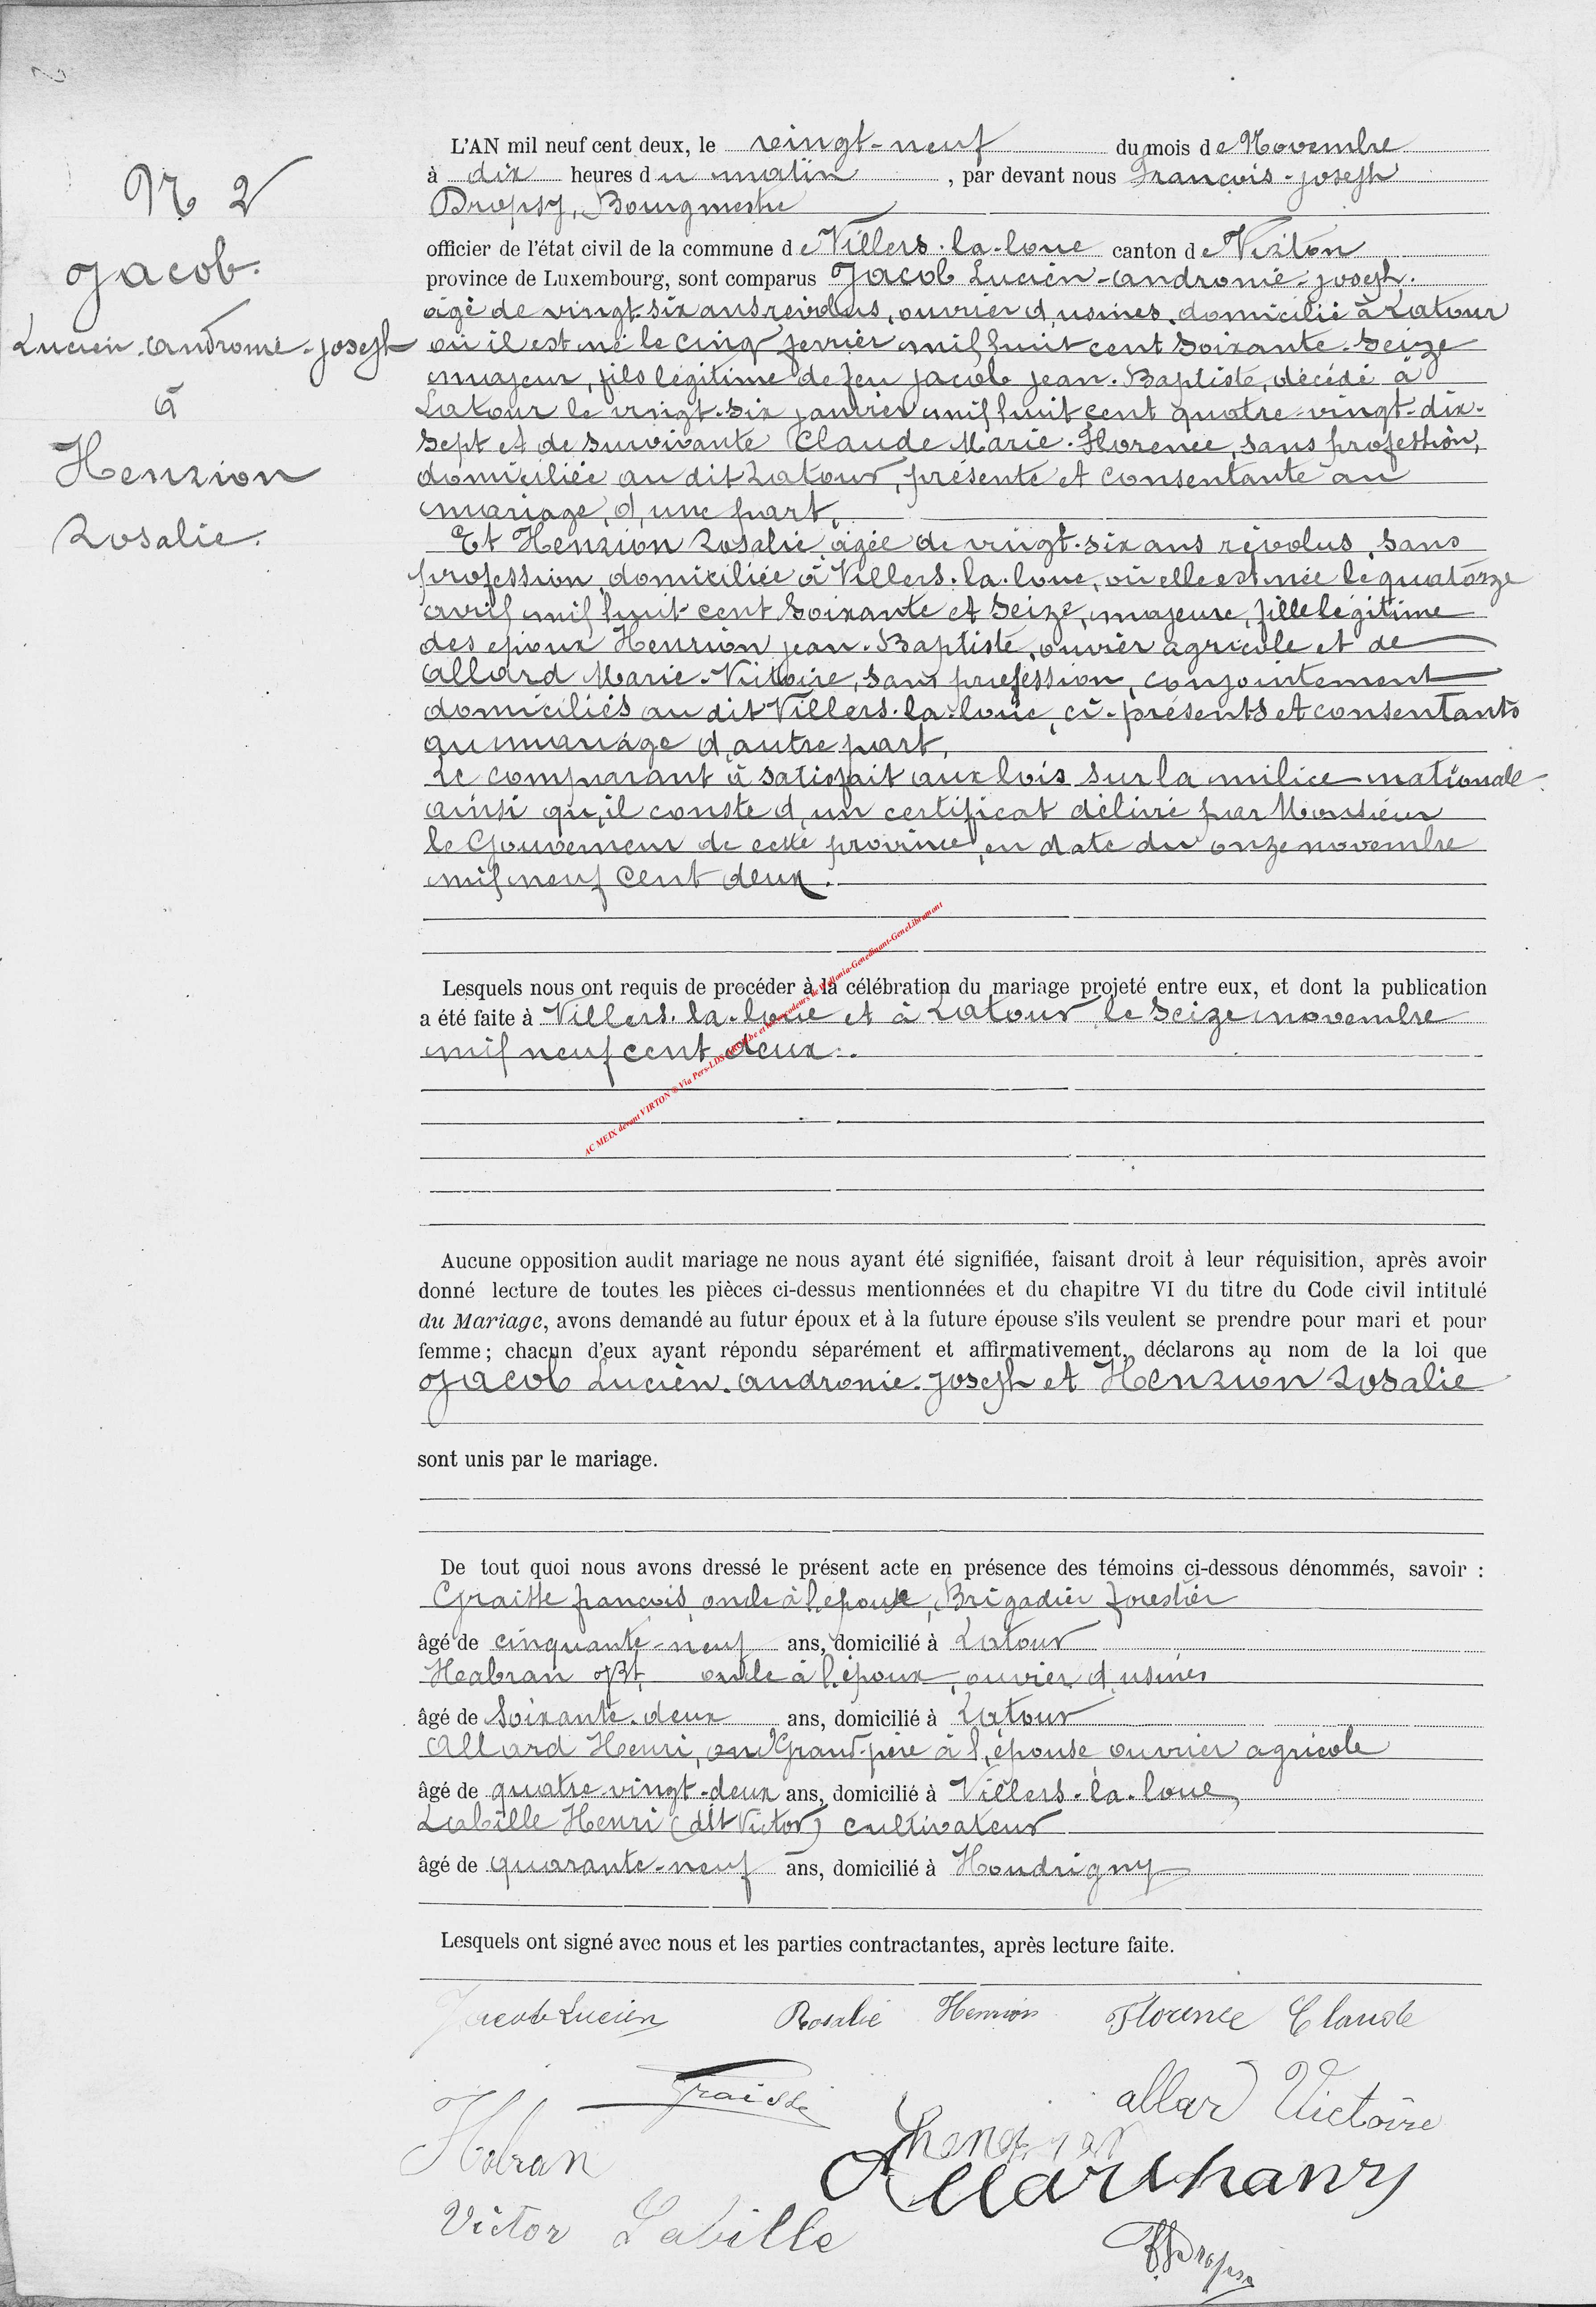 2
N° 2
Jacob.
Lucien-Andromé-Joseph
à
Henrion
Rosalie.
L'AN mil neuf cent deux, le vingt-neuf du mois de Novembre
à dix heures du matin, par devant nous François-Joseph
Dropsy, Bourgmestre
officier de l'état civil de la commune de Villers-la-loue canton de Virton
province de Luxembourg, sont comparus Jacob Lucien-Andromé-Joseph.
âgé de vingt-six ans révolus, ouvrier d'usines, domicilié à Latour
où il est né le cinq février mil huit cent soixante-seize
majeur, fils légitime de feu Jacob Jean-Baptiste, décédé à
Latour le vingt-six janvier mil huit cent quatre-vingt-dix-
sept et de survivante Claude Marie-Florence, sans profession,
domiciliée au dit Latour, présente et consentante au
mariage, d'une part,
Et Henrion Rosalie âgée de vingt-six ans révolus, sans
profession, domiciliée à Villers-la-loue, où elle est née le quatorze
avril mil huit cent soixante et seize, majeure, fille légitime
des époux Henrion Jean-Baptiste, ouvrier agricole et de
Allard Marie-Victoire, sans profession, conjointement
domiciliés au dit Villers-la-loue, ci-présents et consentants
au mariage d'autre part,
Le comparant à satisfait aux lois sur la milice nationale
ainsi qu'il conste d'un certificat délivré par Monsieur
le Gouverneur de cette province, en date du onze novembre
mil neuf cent deux.
Lesquels nous ont requis de procéder à la célébration du mariage projeté entre eux, et dont la publication
a été faite à Villers-la-loue et à Latour le seize novembre
mil neuf cent deux.
AC MEIX devant VIRTON @ Via Pers-LDS Wallonia-Genedinant-GeneLibramont
Aucune opposition audit mariage ne nous ayant été signifiée, faisant droit à leur réquisition, après avoir
donné lecture de toutes les pièces ci-dessus mentionnées et du chapitre VI du titre du Code civil intitulé
du Mariage, avons demandé au futur époux et à la future épouse s'ils veulent se prendre pour mari et pour
femme; chacun d'eux ayant répondu séparément et affirmativement, déclarons au nom de la loi que
Jacob Lucien-Andromé-Joseph et Henrion Rosalie
sont unis par le mariage.
De tout quoi nous avons dressé le présent acte en présence des témoins ci-dessous dénommés, savoir :
Graisse françois, oncle à l'époux, Brigadier forestier
âgé de cinquante-neuf ans, domicilié à Latour
Habran JBt, oncle à l'époux, ouvrier d'usines
âgé de soixante-deux ans, domicilié à Latour
Allard Henri, Grand-père à l'épouse ouvrier agricole
âgé de quatre-vingt-deux ans, domicilié à Villers-la-loue,
Labille Henri (dit Victor) cultivateur
âgé de quarante-neuf ans, domicilié à Houdrigny
Lesquels ont signé avec nous et les parties contractantes, après lecture faite.
Jacob Lucien Rosalie Henrion Florence Claude
Graisse allard Victoire
Habran henrion
Allard hanry
Victor Labille
FJ Dropsy